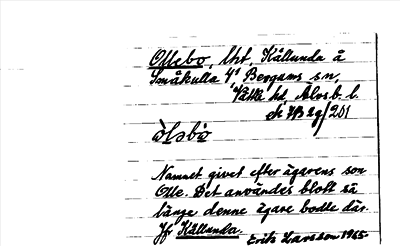 Ollebo, lht, Kållunda å
Småkulla 4¹ Bergums sn,
Vättle hd, Älvsb. l.
ek 7B 2g/201
òl̀ebò
Namnet givet efter ägarens son
Olle. Det användes blott så
länge denne ägare bodde där.
Jfr Kållunda.
Erik Larsson 1965